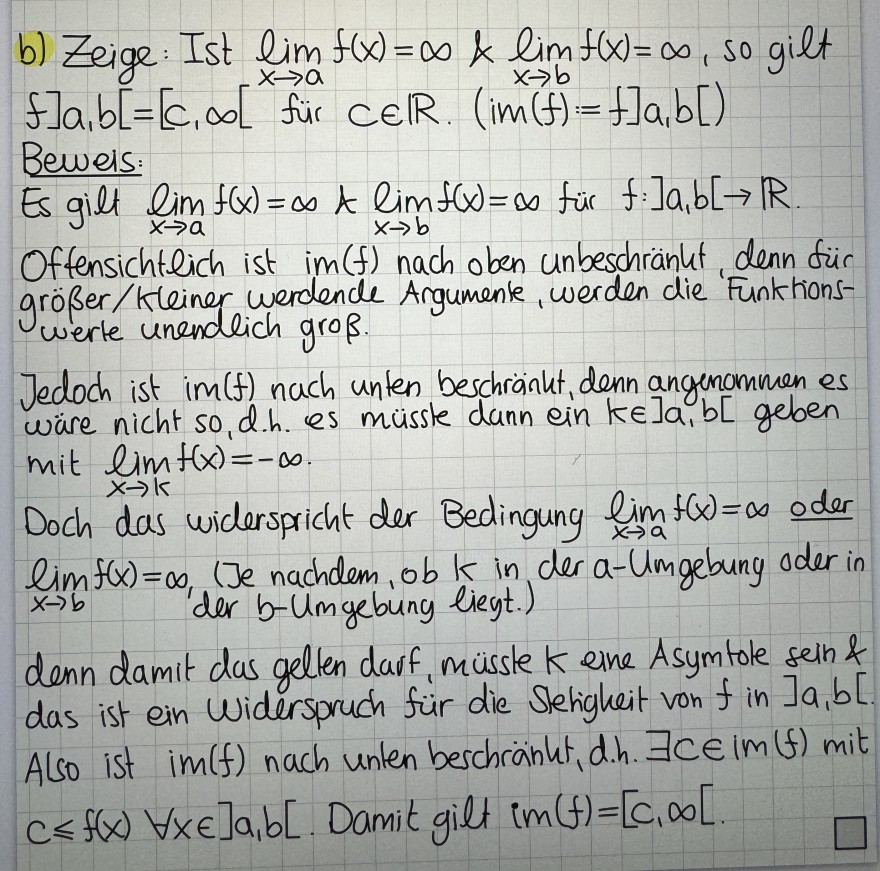 b) Zeige: Ist lim f(x) = ∞ & lim f(x) = ∞, so gilt
x→a x→b
f]a,b[=[c,∞[ für c∈ℝ. (im(f):=f]a,b[)
Beweis:
Es gilt lim f(x) = ∞ & lim f(x) = ∞ für f:]a,b[→ℝ.
x→a x→b
Offensichtlich ist im(f) nach oben unbeschränkt, denn für
größer/kleiner werdende Argumente, werden die Funktions-
werte unendlich groß.
Jedoch ist im(f) nach unten beschränkt, denn angenommen es
wäre nicht so, d.h. es müsste dann ein k∈]a,b[ geben
mit lim f(x) = -∞.
x→k
Doch das widerspricht der Bedingung lim f(x) = ∞ oder
x→a
lim f(x) = ∞, (Je nachdem, ob k in der a-Umgebung oder in
x→b der b-Umgebung liegt.)
denn damit das gelten darf, müsste k eine Asymtote sein &
das ist ein Widerspruch für die Stetigkeit von f in ]a,b[.
Also ist im(f) nach unten beschränkt, d.h. ∃c∈im(f) mit
c≤f(x) ∀x∈]a,b[. Damit gilt im(f)=[c,∞[.